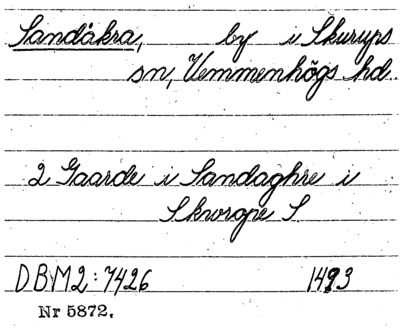 Sandåkra, by i Skurups
sn, Vemmenhögs hd.
2 Gaarde i Sandaghre i
Skworgpe S
DBM2:7426 1493
Nr 5872.